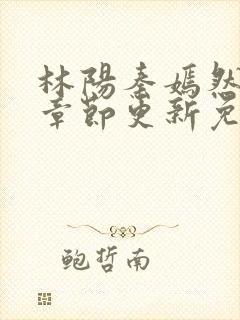 林陽秦嫣然
章節更新免
鮑哲南